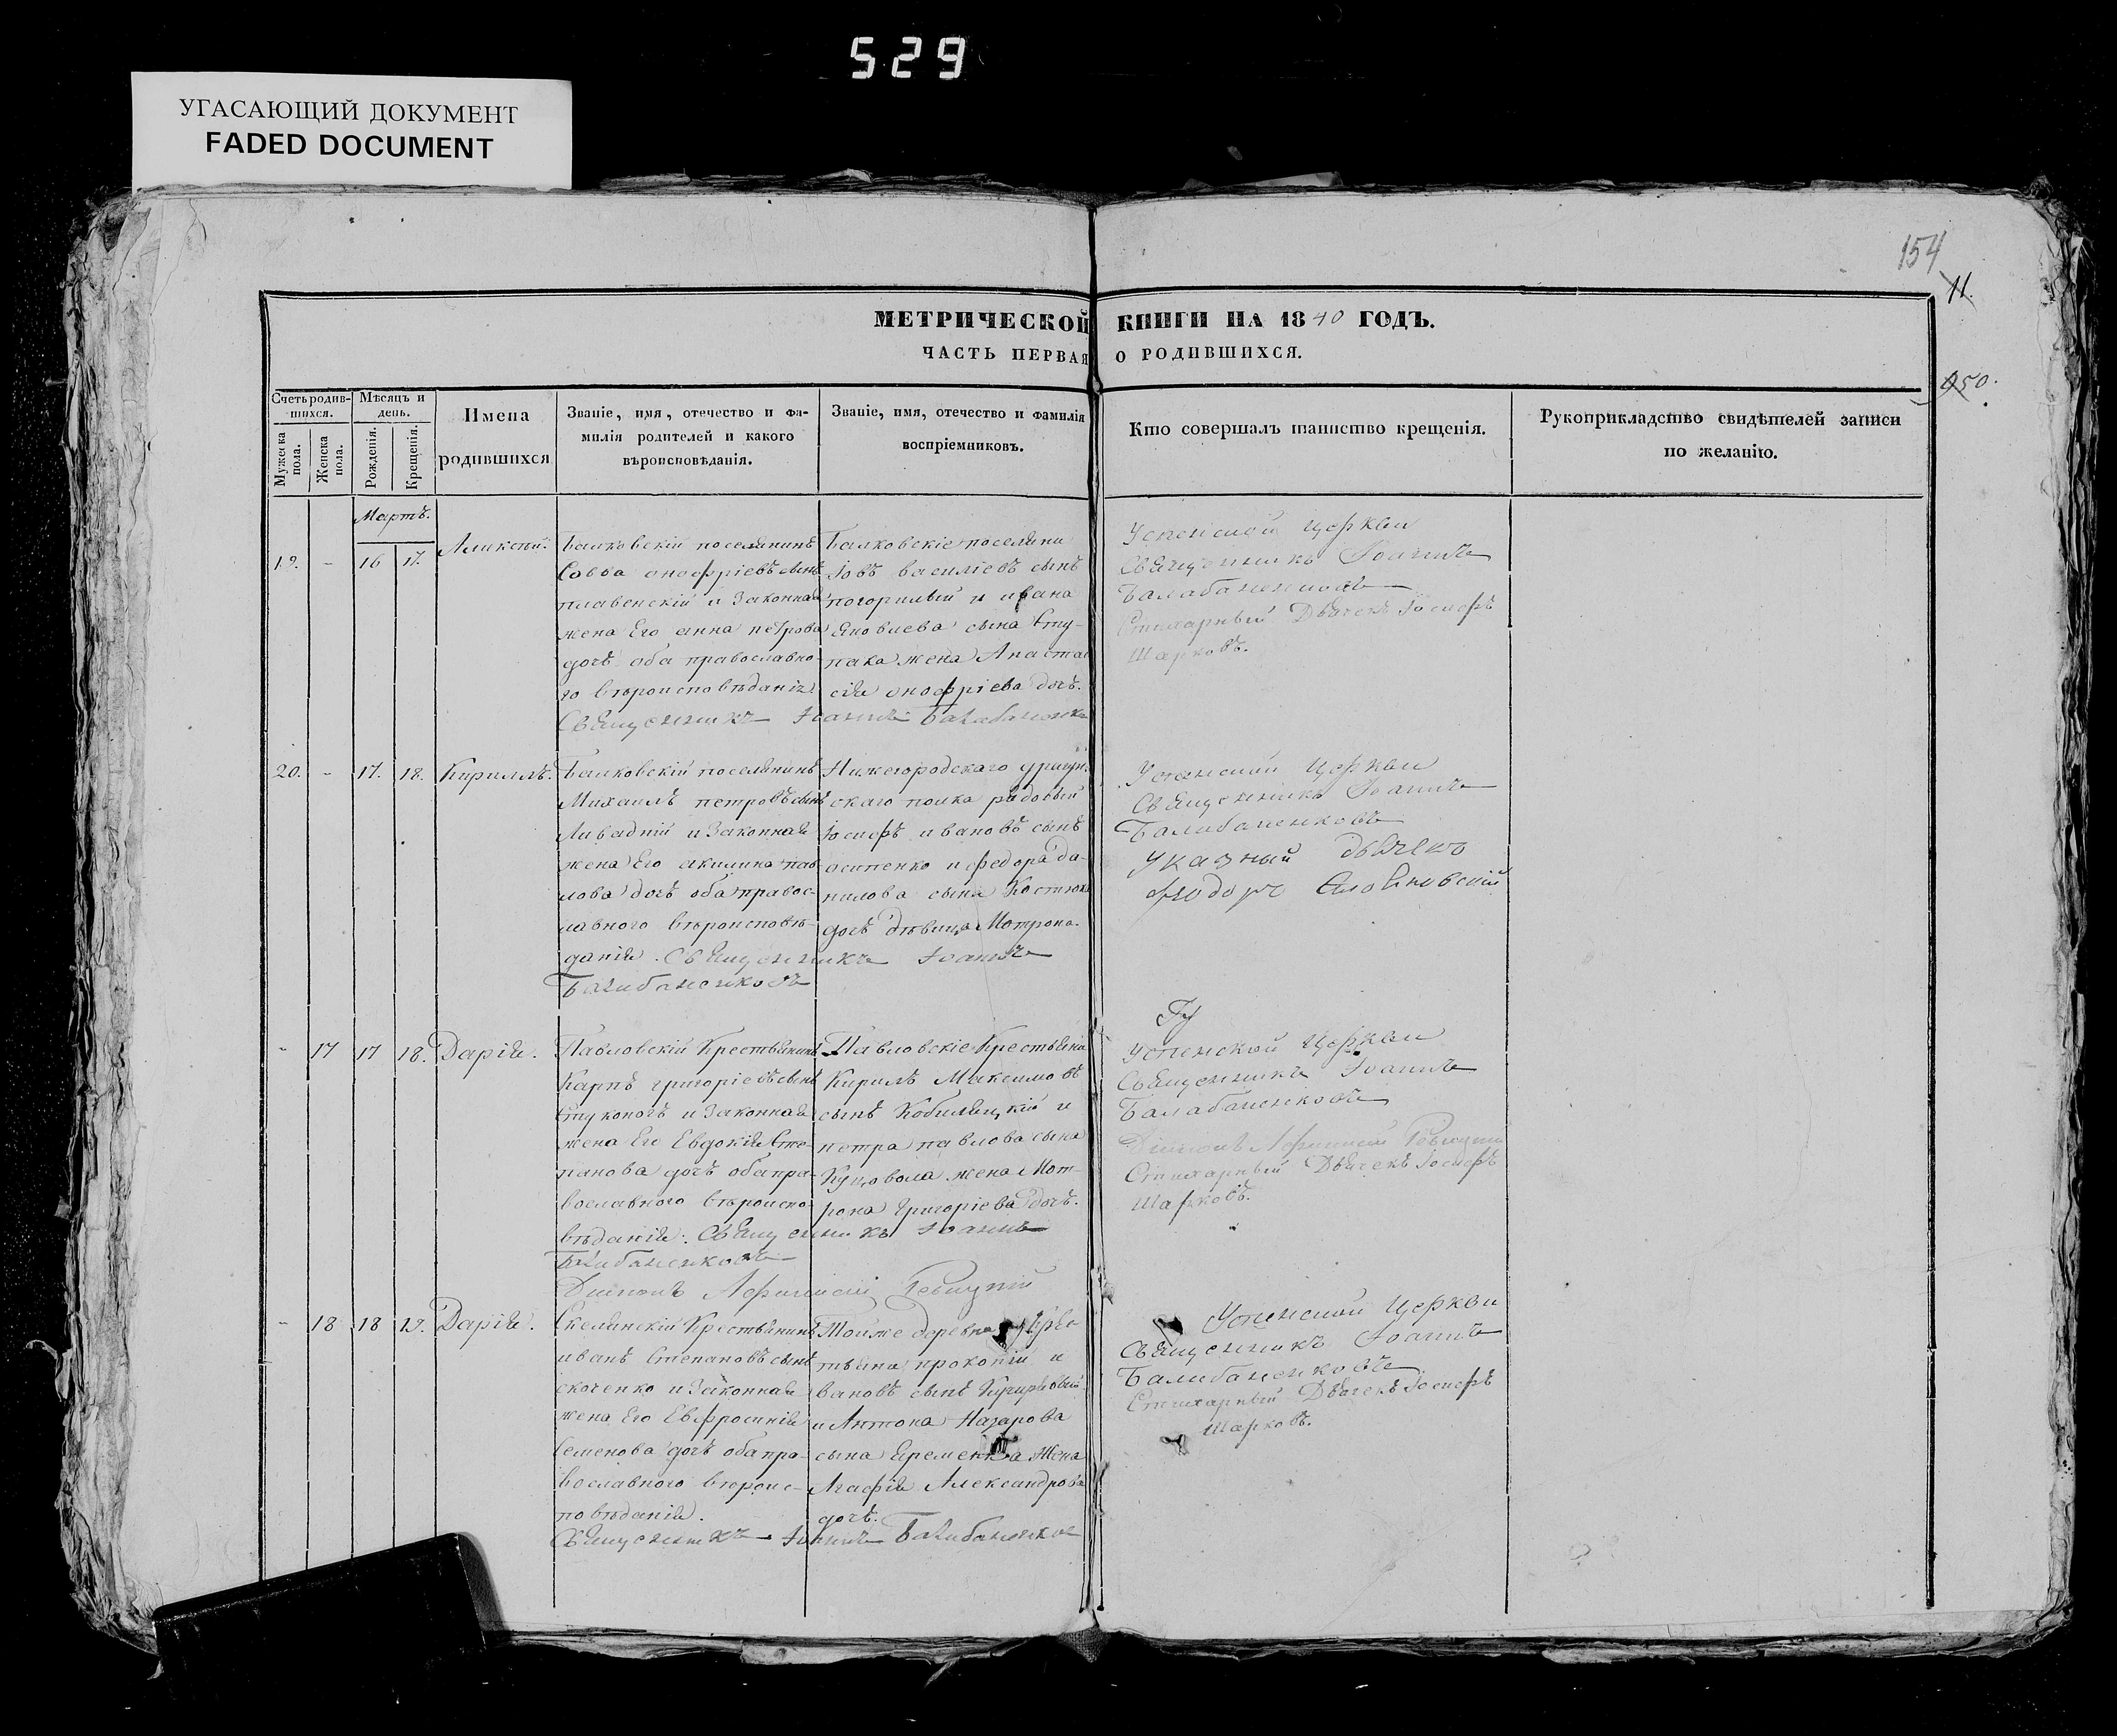 529
УГАСАЮЩИЙ ДОКУМЕНТ
FADED DOCUMENT
154
11.
950.
МЕТРИЧЕСКОЙ КНИГИ НА 1840 ГОДЪ.
ЧАСТЬ ПЕРВАЯ О РОДИВШИХСЯ.
Счетъ родив-
шихся.
Мужеска
пола.
Женска
пола.
Мѣсяцъ и
день.
Рожденія.
Крещенія.
Имена
родившихся
Званіе, имя, отечество и фа-
милія родителей и какого
вѣроисповѣданія.
Званіе, имя, отечество и фамилія
воспріемниковъ.
Кто совершалъ таинство крещенія.
Рукоприкладство свидѣтелей записи
по желанію.
Мартъ.
19. - 16 17.
Аликсѣй.
Балковскій поселянинъ
Савва онофріевъ сынъ
плавенскій и Законная
жена Его анна петрова
дочь оба православно-
го вѣроисповѣданія
Балковскіе поселяни
Іовъ василіевъ сынъ
погорилый и ивана
Яковлева сына Сту-
пака жена Анаста
сія онофріева дочь.
Священникъ Іоаннъ Балабаненко
Успенской Церкви
Священникъ Іоаннъ
Балабаненковъ
Стихарный Дьячекъ Іосифъ
Шарковъ.
20. - 17. 18. Кириллъ.
Балковскій поселянинъ
Михаилъ петровъ сынъ
Ливадній и Законная
жена Его акилина пав-
лова дочь оба правос-
лавного вѣроисповѣ-
данія. Священникъ Іоаннъ
Балабаненковъ
Нижегородскаго драгун-
скаго полка рядовый
Іосифъ ивановъ сынъ
осипенко и федора Да-
нилова сына Костюка
дочь дѣвица Мотрона.
Успенской Церкви
Священникъ Іоаннъ
Балабаненковъ
Указный дьячекъ
Ѳеодоръ
- 17 17 18. Дарія.
Павловскій Крестьянинъ
Карпъ григоріевъ сынъ
Стуконогъ и Законная
жена Его Евдокія Сте-
панова дочь оба пра-
вославного вѣроиспо-
вѣданія. Священникъ Іоаннъ
Балабаненковъ
Діаконъ Ревицкій
Павловскіе Крестьяни
Кирилъ Максимовъ
сынъ Кобиляцкій и
петра павлова сына
Куцовола жена Мот-
рона Григоріева дочь.
Гу
Успенской Церкви
Священникъ Іоаннъ
Балабаненковъ
Діаконъ
Стихарный Дьячекъ Іосифъ
Шарковъ.
- 18 18 19. Дарія.
Скелянскій Крестьянинъ
иванъ Степановъ сынъ
скоченко и Законная
жена Его Евфросинія
Семенова дочь оба пра-
вославного вѣроис-
повѣданія.
Тойже деревни Крес
тьяна прокопій и
вановъ сынъ
и Антона Назарова
сына Яременка Жена
Агафія Александрова
дочь.
Священникъ Іоаннъ Балабаненков
Успенской Церкви
Священникъ Іоаннъ
Балабаненковъ
Стихарный Дьячекъ Іосифъ
Шарковъ.